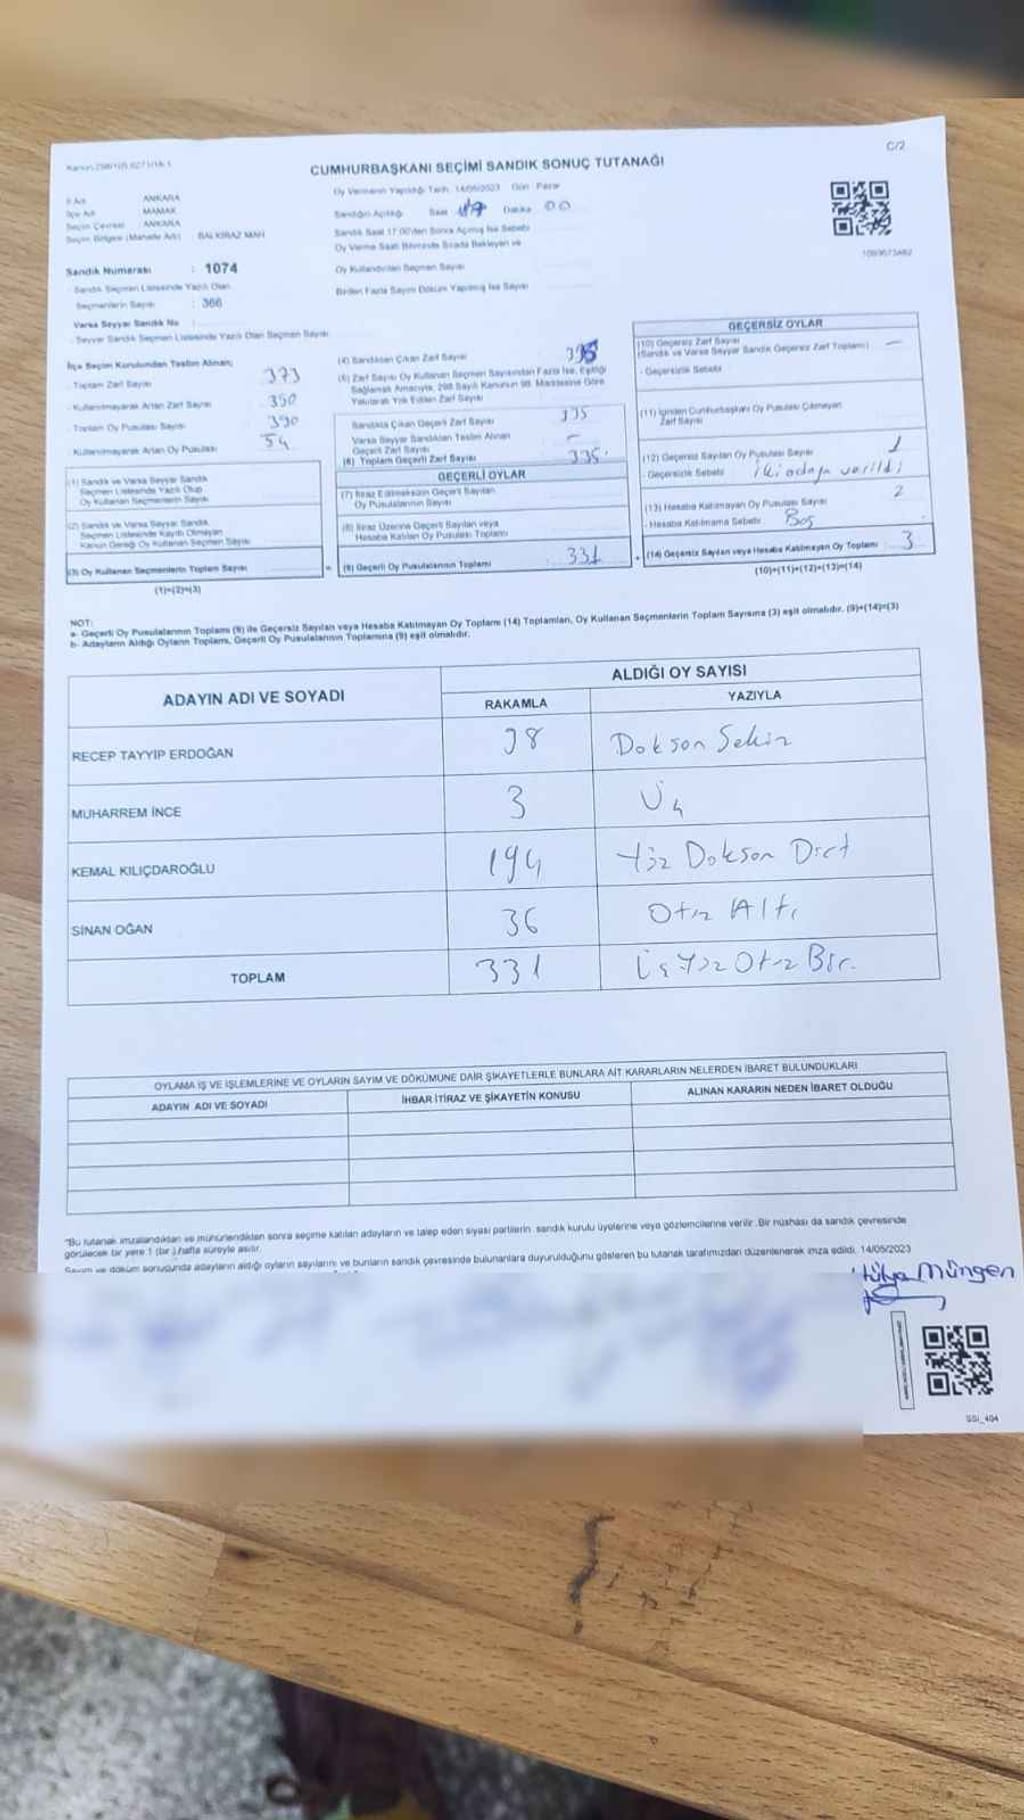 C/2
CUMHURBAŞKANI SEÇİMİ SANDIK SONUÇ TUTANAĞI
İl Adı ANKARA
İlçe Adı MAMAK
Seçim Çevresi : ANKARA
Seçim Bölgesi (Mahalle Adı) BALKİRAZ MAH
Oy Vermenin Yapıldığı Tarih 14/05/2023 Gün Pazar
Sandığın Açıldığı Saat 17 Dakika 00
Sandık Saat 17:00'den Sonra Açılmış İse Sebebi
Oy Verme Saati Bitiminde Sırada Bekleyen ve
Oy Kullandırılan Seçmen Sayısı
Birden Fazla Sayım Döküm Yapılmış İse Sayısı
Sandık Numarası : 1074
Sandık Seçmen Listesinde Yazılı Olan
Seçmenlerin Sayısı : 366
Varsa Seyyar Sandık No
Seyyar Sandık Seçmen Listesinde Yazılı Olan Seçmen Sayısı
İlçe Seçim Kurulundan Teslim Alınan;
Toplam Zarf Sayısı 373
Kullanılmayarak Artan Zarf Sayısı
Toplam Oy Pusulası Sayısı 390
Kullanılmayarak Artan Oy Pusulası 54
(1) Sandık ve Varsa Seyyar Sandık
Seçmen Listesinde Yazılı Olup
Oy Kullanan Seçmenlerin Sayısı
(2) Sandık ve Varsa Seyyar Sandık
Seçmen Listesinde Kayıtlı Olmayan
Kanun Gereği Oy Kullanan Seçmen Sayısı
(3) Oy Kullanan Seçmenlerin Toplam Sayısı
(1)+(2)=(3)
(4) Sandıktan Çıkan Zarf Sayısı
(5) Zarf Sayısı Oy Kullanan Seçmen Sayısından Fazla İse, Eşitliği
Sağlamak Amacıyla, 298 Sayılı Kanunun 98. Maddesine Göre
Yakılarak Yok Edilen Zarf Sayısı
Sandıkta Çıkan Geçerli Zarf Sayısı 335
Varsa Seyyar Sandıktan Teslim Alınan
Geçerli Zarf Sayısı –
(6) Toplam Geçerli Zarf Sayısı 335
GEÇERLİ OYLAR
(7) İtiraz Edilmeksizin Geçerli Sayılan
Oy Pusulasının Sayısı
(8) İtiraz Üzerine Geçerli Sayılan veya
Hesaba Katılan Oy Pusulası Toplamı
(9) Geçerli Oy Pusulalarının Toplamı 331
GEÇERSİZ OYLAR
(10) Geçersiz Zarf Sayısı —
(Sandık ve Varsa Seyyar Sandık Geçersiz Zarf Toplamı)
- Geçersizlik Sebebi
(11) İçinden Cumhurbaşkanı Oy Pusulası Çıkmayan
Zarf Sayısı
(12) Geçersiz Sayılan Oy Pusulası Sayısı 1
Geçersizlik Sebebi iki adaya verildi
(13) Hesaba Katılmayan Oy Pusulası Sayısı 2
- Hesaba Katılmama Sebebi Boş
(14) Geçersiz Sayılan veya Hesaba Katılmayan Oy Toplamı 3
(10)+(11)+(12)+(13)=(14)
NOT:
a- Geçerli Oy Pusulalarının Toplamı (9) ile Geçersiz Sayılan veya Hesaba Katılmayan Oy Toplamı (14) Toplamları, Oy Kullanan Seçmenlerin Toplam Sayısına (3) eşit olmalıdır. (9)+(14)=(3)
b- Adayların Aldığı Oyların Toplamı, Geçerli Oy Pusulalarının Toplamına (9) eşit olmalıdır.
ADAYIN ADI VE SOYADI ALDIĞI OY SAYISI
RAKAMLA YAZIYLA
RECEP TAYYİP ERDOĞAN 98 Dokson Sekiz
MUHARREM İNCE 3 Üç
KEMAL KILIÇDAROĞLU 194 Yüz Dokson Dört
SİNAN OĞAN 36 Otuz Altı
TOPLAM 331 Üç Yüz Otuz Bir.
OYLAMA İŞ VE İŞLEMLERİNE VE OYLARIN SAYIM VE DÖKÜMÜNE DAİR ŞİKAYETLERLE BUNLARA AİT KARARLARIN NELERDEN İBARET BULUNDUKLARI
ADAYIN ADI VE SOYADI İHBAR İTİRAZ VE ŞİKAYETİN KONUSU ALINAN KARARIN NEDEN İBARET OLDUĞU
"Bu tutanak imzalandıktan ve mühürlendikten sonra seçime katılan adayların ve talep eden siyasi partilerin sandık kurulu üyelerine veya gözlemcilerine verilir. Bir nüshası da sandık çevresinde
görülecek bir yere 1 (bir) hafta süreyle asılır.
Sayım ve döküm sonucunda adayların aldığı oyların sayılarını ve bunların sandık çevresinde bulunanlara duyurulduğunu gösteren bu tutanak tarafımızdan düzenlenerek imza edildi. 14/05/2023
Hülya Müngen
SSİ_404